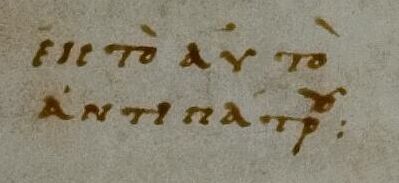 εἰς τὸ ἀυτὸ
ἀντιπάτρου: